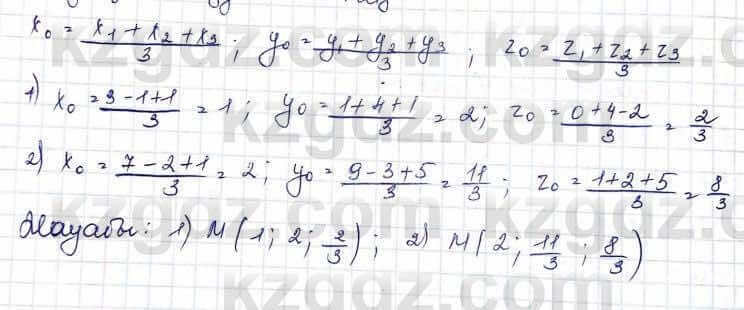 x₀ = (x₁ + x₂ + x₃)/3 ; y₀ = (y₁ + y₂ + y₃)/3 ; z₀ = (z₁ + z₂ + z₃)/3
1) x₀ = (3 - 1 + 1)/3 = 1 ; y₀ = (1 + 4 + 1)/3 = 2 ; z₀ = (0 + 4 - 2)/3 = 2/3
2) x₀ = (7 - 2 + 1)/3 = 2 ; y₀ = (9 - 3 + 5)/3 = 11/3 ; z₀ = (1 + 2 + 5)/3 = 8/3
Жауабы: 1) M(1; 2; 2/3) ; 2) M(2; 11/3 ; 8/3)
kzgdz.com